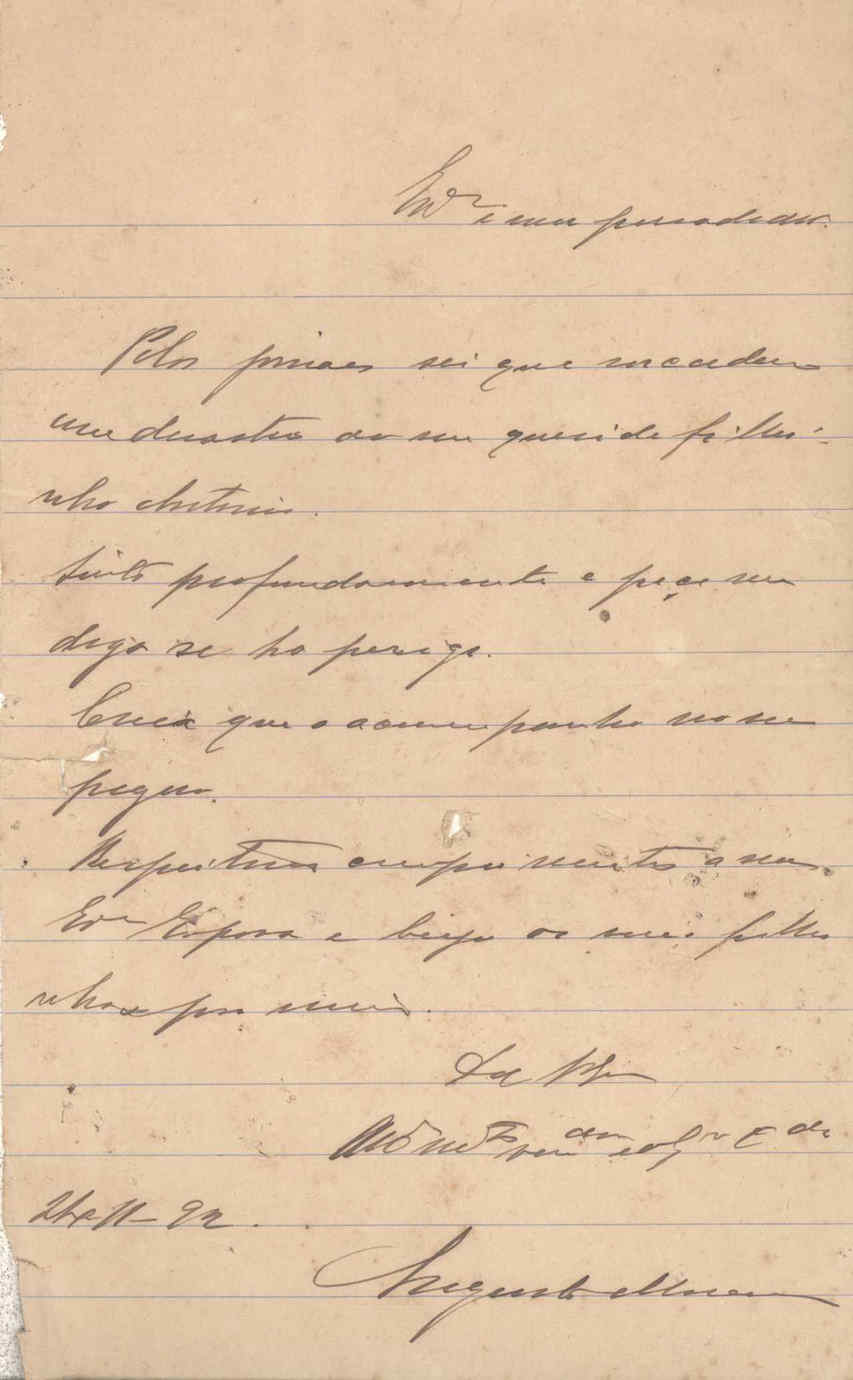 e meu
Pelos jornaes sei que succedeu
um desastre ao seu querido filhi-
nho Antonio.
Sinto profundamente e peço me
diga se ha perigo.
Creia que o acompanho no seu
pezar.
Respeitosos cumprimentos a sua
Exª Esposa e beijo os seus filhi
nhos por mim.
De V.
Mto
24-11-92.
Augusto